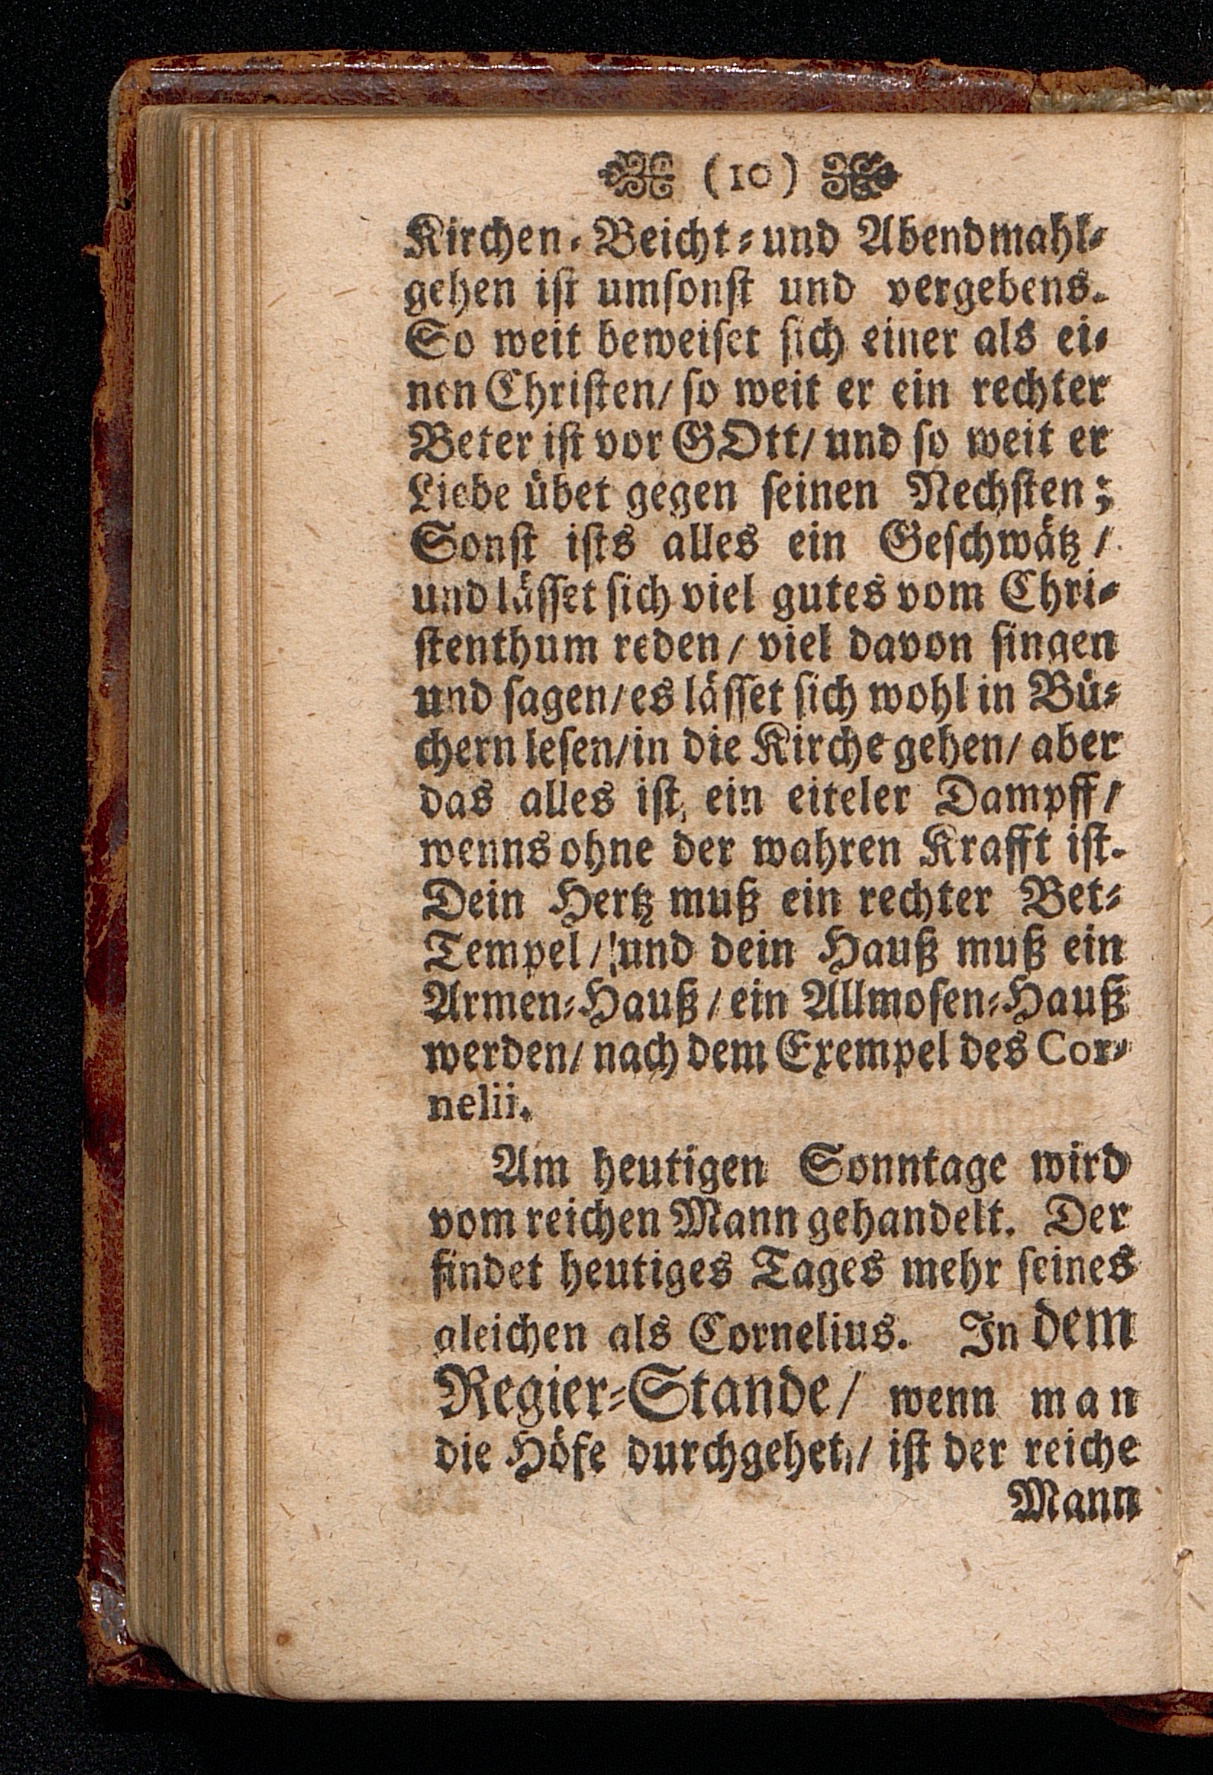 (10)
Kirchen-Beicht-und Abendmahl-
gehen ist umsonst und vergebens.
So weit beweiset sich einer als ei-
nen Christen/ so weit er ein rechter
Beter ist vor GOtt/ und so weit er
Liebe übet gegen seinen Nechsten;
Sonst ists alles ein Geschwätz/
und lässet sich viel gutes vom Chri-
stenthum reden/ viel davon singen
und sagen/ es lässet sich wohl in Bü-
chern lesen/ in die Kirche gehen/ aber
das alles ist, ein eiteler Dampff/
wenns ohne der wahren Krafft ist.
Dein Hertz muß ein rechter Bet-
Tempel/ und dein Hauß muß ein
Armen-Hauß/ ein Allmosen-Hauß
werden/ nach dem Exempel des Cor-
nelii.
Am heutigen Sonntage wird
vom reichen Mann gehandelt. Der
findet heutiges Tages mehr seines
gleichen als Cornelius. In dem
Regier-Stande/ wenn man
die Höfe durchgehet/ ist der reiche
Mann